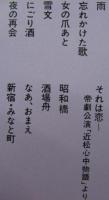 雨
忘れかけた歌
女の爪あと
雪文
にごり酒
夜の再会
それは恋
帝劇公演「近松心中物語」より
昭和橋
酒場舟
なあ、おまえ
新宿・みなと町